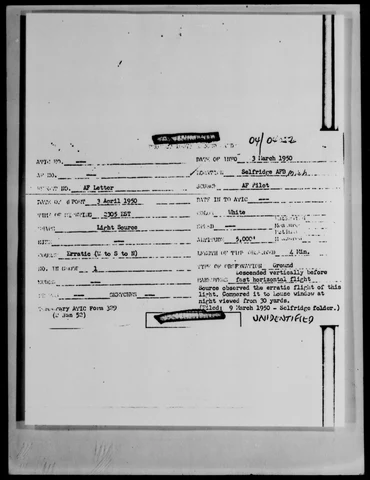 04/0422
ATIC NO. — DATE OF INFO 3 March 1950
AF NO. — LOCATION Selfridge AFB Mich
REPORT NO. AF Letter SOURCE AF Pilot
DATE OF REPORT 3 April 1950 DATE IN TO ATIC —
TIME OF SIGHTING 2305 EST COLOR White
SHAPE Light Source SPEED —
SIZE — ALTITUDE 5,000'
COURSE Erratic (N to S to N) LENGTH OF TIME OBSERVED 4 Min.
NO. IN GROUP 1 TYPE OF OBSERVATION Ground
descended vertically before
SOUND — MANEUVERS fast horizontal flight
PHOTOS — SKETCHES —
Source observed the erratic flight of this
light. Compared it to house window at
night viewed from 30 yards.
Temporary ATIC Form 329
(2 Jan 52)
(Filed: 9 March 1950 - Selfridge folder.)
UNIDENTIFIED